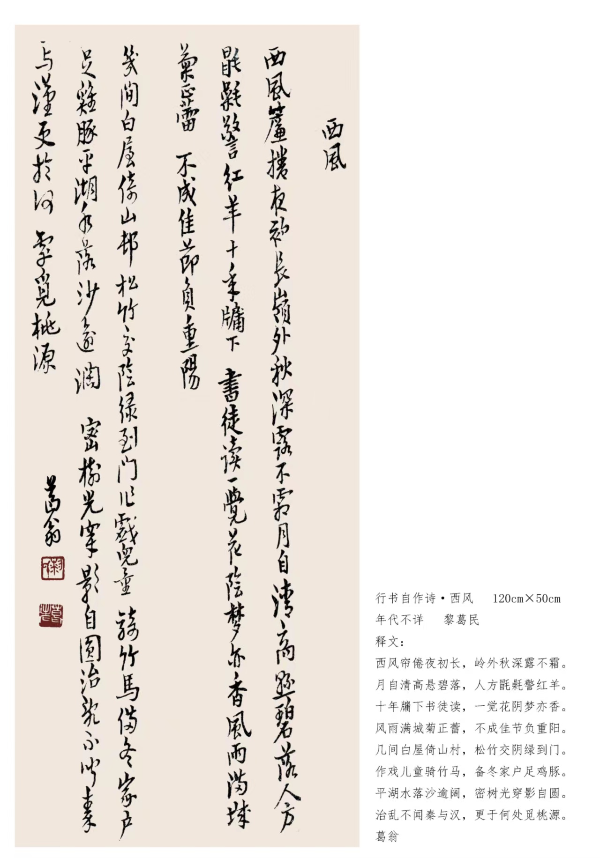 西風
西風簾捲夜初長嶺外秋深露不霜月自清高懸碧落人方
毷氉警红羊十年牖下書徒读一覺花陰梦亦香風雨满城
菊正蕾不成佳節負重陽
幾間白屋倚山邨松竹交陰绿到门作戲兒童騎竹馬備冬家户
足雞豚平湖水落沙逾阔密樹光穿影自圆治亂不闻秦
与漢更於何處覓桃源
葛翁
行书自作诗·西风 120cm×50cm
年代不详 黎葛民
释文：
西风帘倦夜初长，岭外秋深露不霜。
月自清高悬碧落，人方毷氉警红羊。
十年牖下书徒读，一觉花阴梦亦香。
风雨满城菊正蕾，不成佳节负重阳。
几间白屋倚山村，松竹交阴绿到门。
作戏儿童骑竹马，备冬家户足鸡豚。
平湖水落沙逾阔，密树光穿影自圆。
治乱不闻秦与汉，更于何处觅桃源。
葛翁